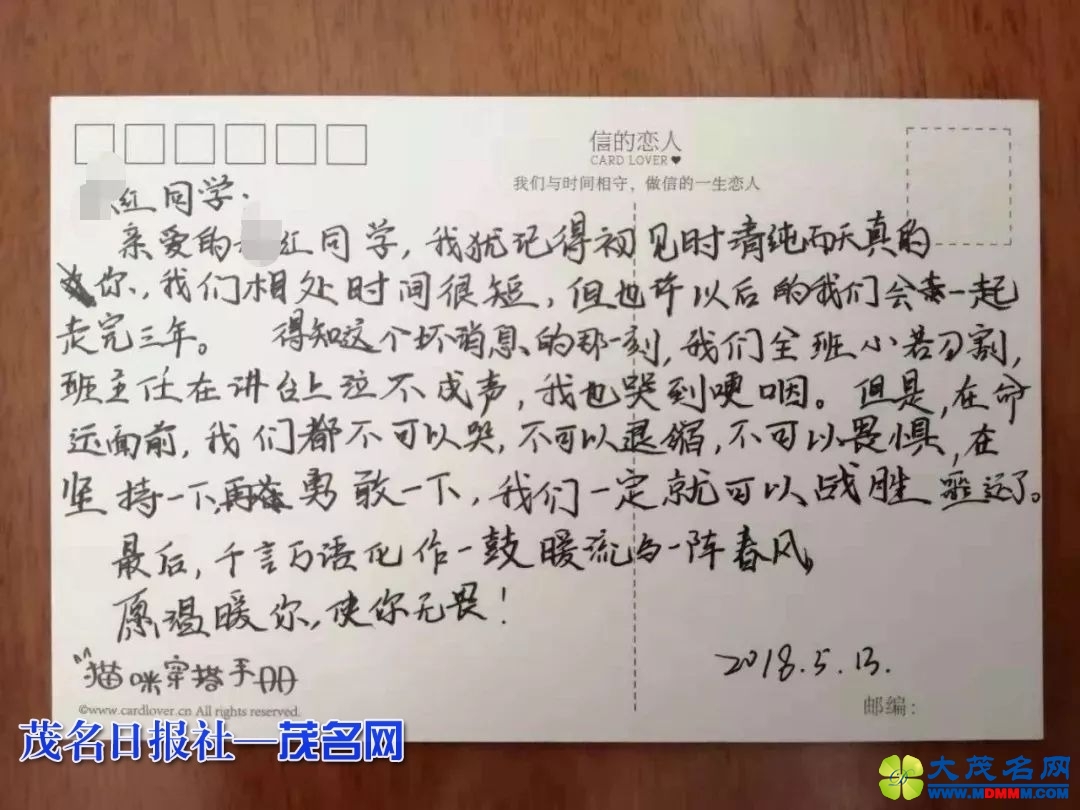 信的恋人
CARD LOVER
我们与时间相守，做信的一生恋人
红同学：
亲爱的 红同学，我犹记得初见时清纯而天真的
你，我们相处时间很短，但也许以后的我们会一起
走完三年。 得知这个坏消息的那一刻，我们全班心若刀割，
班主任在讲台上泣不成声，我也哭到哽咽。但是，在命
运面前，我们都不可以哭，不可以退缩，不可以畏惧，在
坚持一下，再勇敢一下，我们一定就可以战胜噩运了。
最后，千言万语化作一鼓暖流与一阵春风，
愿温暖你，使你无畏！
猫咪穿搭手册
2018.5.13.
©www.cardlover.cn All rights reserved.
邮编：
茂名日报社—茂名网
大茂名网
WWW.MDMMM.COM